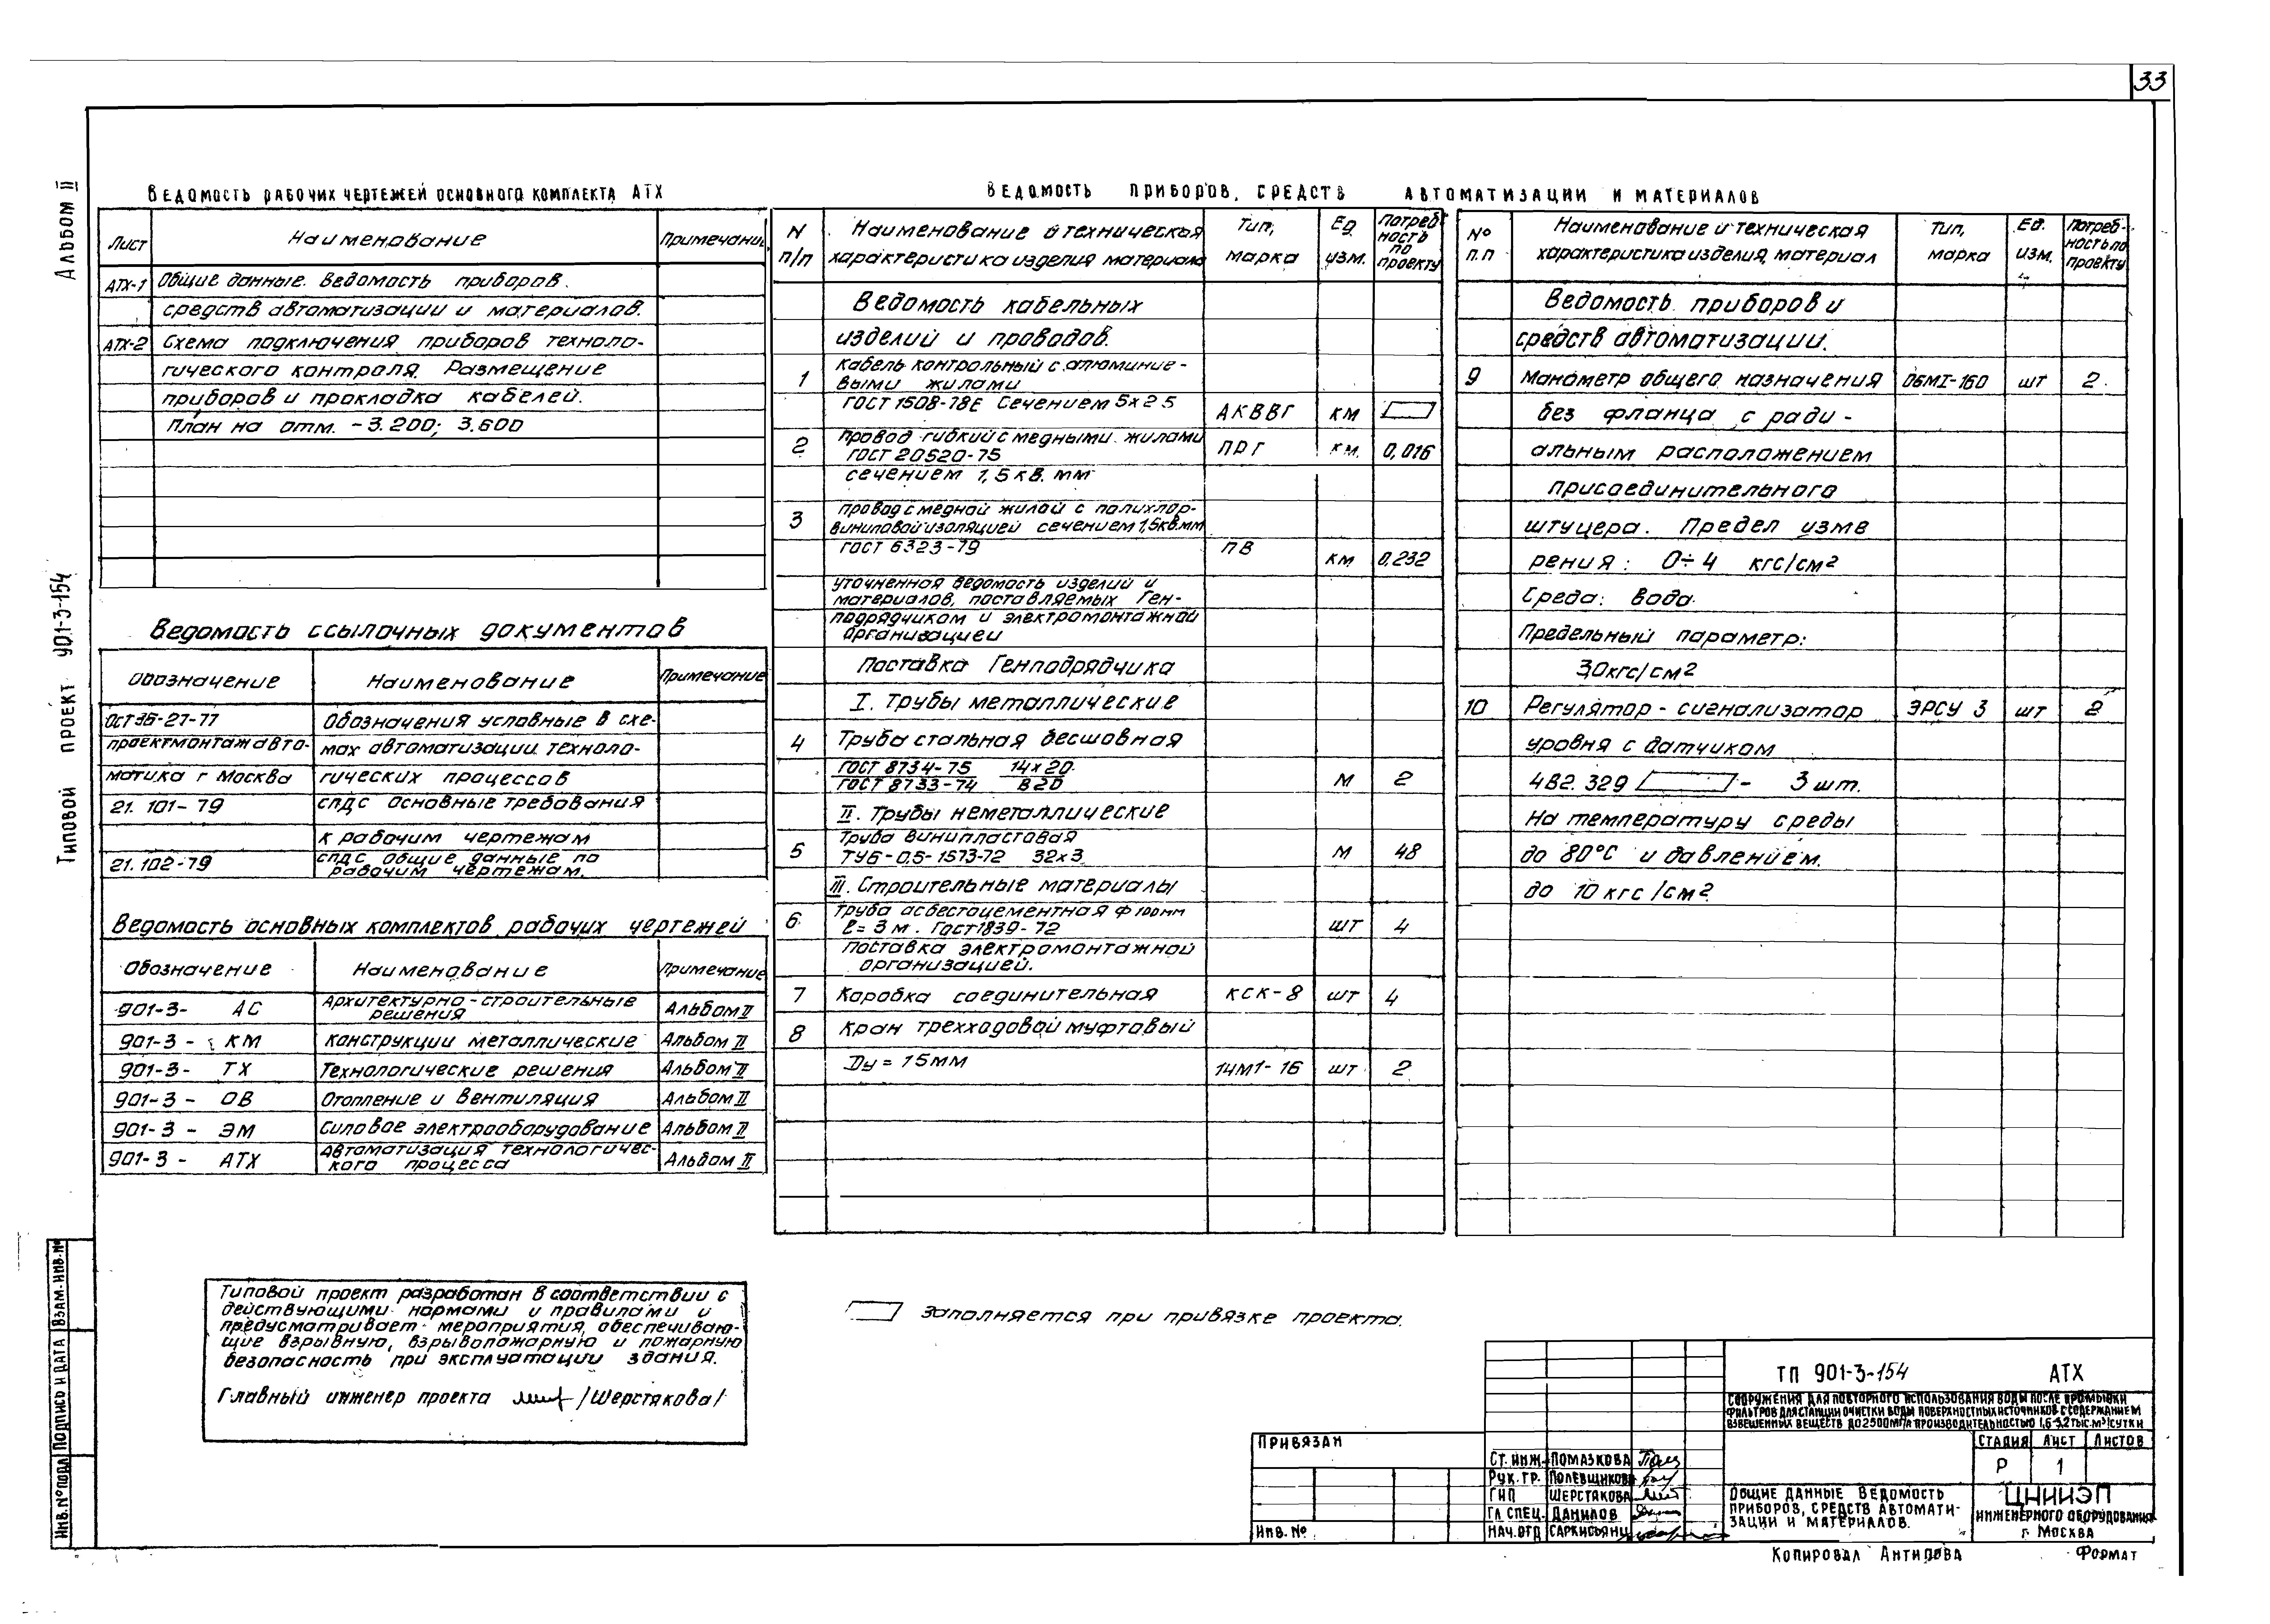 33
Альбом II
Типовой проект 901-3-154
Ведомость рабочих чертежей основного комплекта АТХ
Лист Наименование Примечание
АТХ-1 Общие данные. Ведомость приборов.
средств автоматизации и материалов.
АТХ-2 Схема подключения приборов техноло-
гического контроля. Размещение
приборов и прокладка кабелей.
План на отм. -3.200; 3.600
Ведомость ссылочных документов
Обозначение Наименование Примечание
ОСТ 36-27-77 Обозначения условные в схе-
проектмонтажавто- мах автоматизации техноло-
матика г Москва гических процессов
21. 101-79 СПДС основные требования
к рабочим чертежам
21. 102-79 СПДС общие данные по
рабочим чертежам.
Ведомость основных комплектов рабочих чертежей
Обозначение Наименование Примечание
901-3- АС Архитектурно-строительные
решения Альбом II
901-3- КМ Конструкции металлические Альбом II
901-3- ТХ Технологические решения Альбом II
901-3- ОВ Отопление и вентиляция Альбом II
901-3- ЭМ Силовое электрооборудование Альбом II
901-3- АТХ Автоматизация технологичес-
кого процесса Альбом II
Ведомость приборов, средств автоматизации и материалов
N Наименование и техническая Тип, Ед. Потреб-
п/п характеристика изделия материала марка изм. ность
по
проекту
Ведомость кабельных
изделий и проводов.
1 Кабель контрольный с алюминие-
выми жилами
ГОСТ 1508-78Е Сечением 5х2.5 АКВВГ км
2 Провод гибкий с медными жилами
ГОСТ 20520-75 ПРГ км. 0,016
сечением 1,5 кв. мм
3 Провод с медной жилой с полихлор-
виниловой изоляцией сечением 1,5кв.мм
ГОСТ 6323-79 ПВ км 0,232
уточненная ведомость изделий и
материалов, поставляемых Ген-
подрядчиком и электромонтажной
организацией
Поставка Генподрядчика
I. Трубы металлические
4 Труба стальная бесшовная
ГОСТ 8734-75 14х20
ГОСТ 8733-74 В20 м 2
II. Трубы неметаллические
5 Труба винипластовая
ТУ6-05-1573-72 32х3 м 48
III. Строительные материалы
6 Труба асбестоцементная Ф 100мм
ℓ= 3 м. Гост1839-72 шт 4
поставка электромонтажной
организацией.
7 Коробка соединительная КСК-8 шт 4
8 Кран трехходовой муфтовый
Ду = 15мм 14М1-16 шт 2
№ Наименование и техническая Тип, Ед. Потреб-
п.п характеристика изделия, материал марка изм. ность по
проекту
Ведомость приборов и
средств автоматизации.
9 Манометр общего назначения ОБМI-160 шт 2.
без фланца с ради-
альным расположением
присоединительного
штуцера. Предел изме
рения: 0÷4 кгс/см²
Среда: вода.
Предельный параметр:
3,0кгс/см²
10 Регулятор-сигнализатор ЭРСУ 3 шт 2
уровня с датчиком
4В2. 329 - 3 шт.
На температуру среды
до 80°С и давлением.
до 10 кгс/см²
Типовой проект разработан в соответствии с
действующими нормами и правилами и
предусматривает мероприятия, обеспечиваю-
щие взрывную, взрывопожарную и пожарную
безопасность при эксплуатации здания.
Главный инженер проекта /Шерстякова/
заполняется при привязке проекта.
Инв.№подл Подпись и дата Взам.инв.№
Привязан
Инв. №
Ст. инж. Помазкова
Рук. гр. Полевщикова
ГИП Шерстякова
Гл спец. Данилов
Нач. отд Саркисьянц
ТП 901-3-154 АТХ
Сооружения для повторного использования воды после промывки
фильтров для станции очистки воды поверхностных источников с содержанием
взвешенных веществ до 2500мг/л производительностью 1,6-3,2 тыс. м³/сутки
Стадия Лист Листов
Р 1
Общие данные Ведомость
приборов, средств автомати-
зации и материалов.
ЦНИИЭП
инженерного оборудования
г. Москва
Копировал Антипова Формат